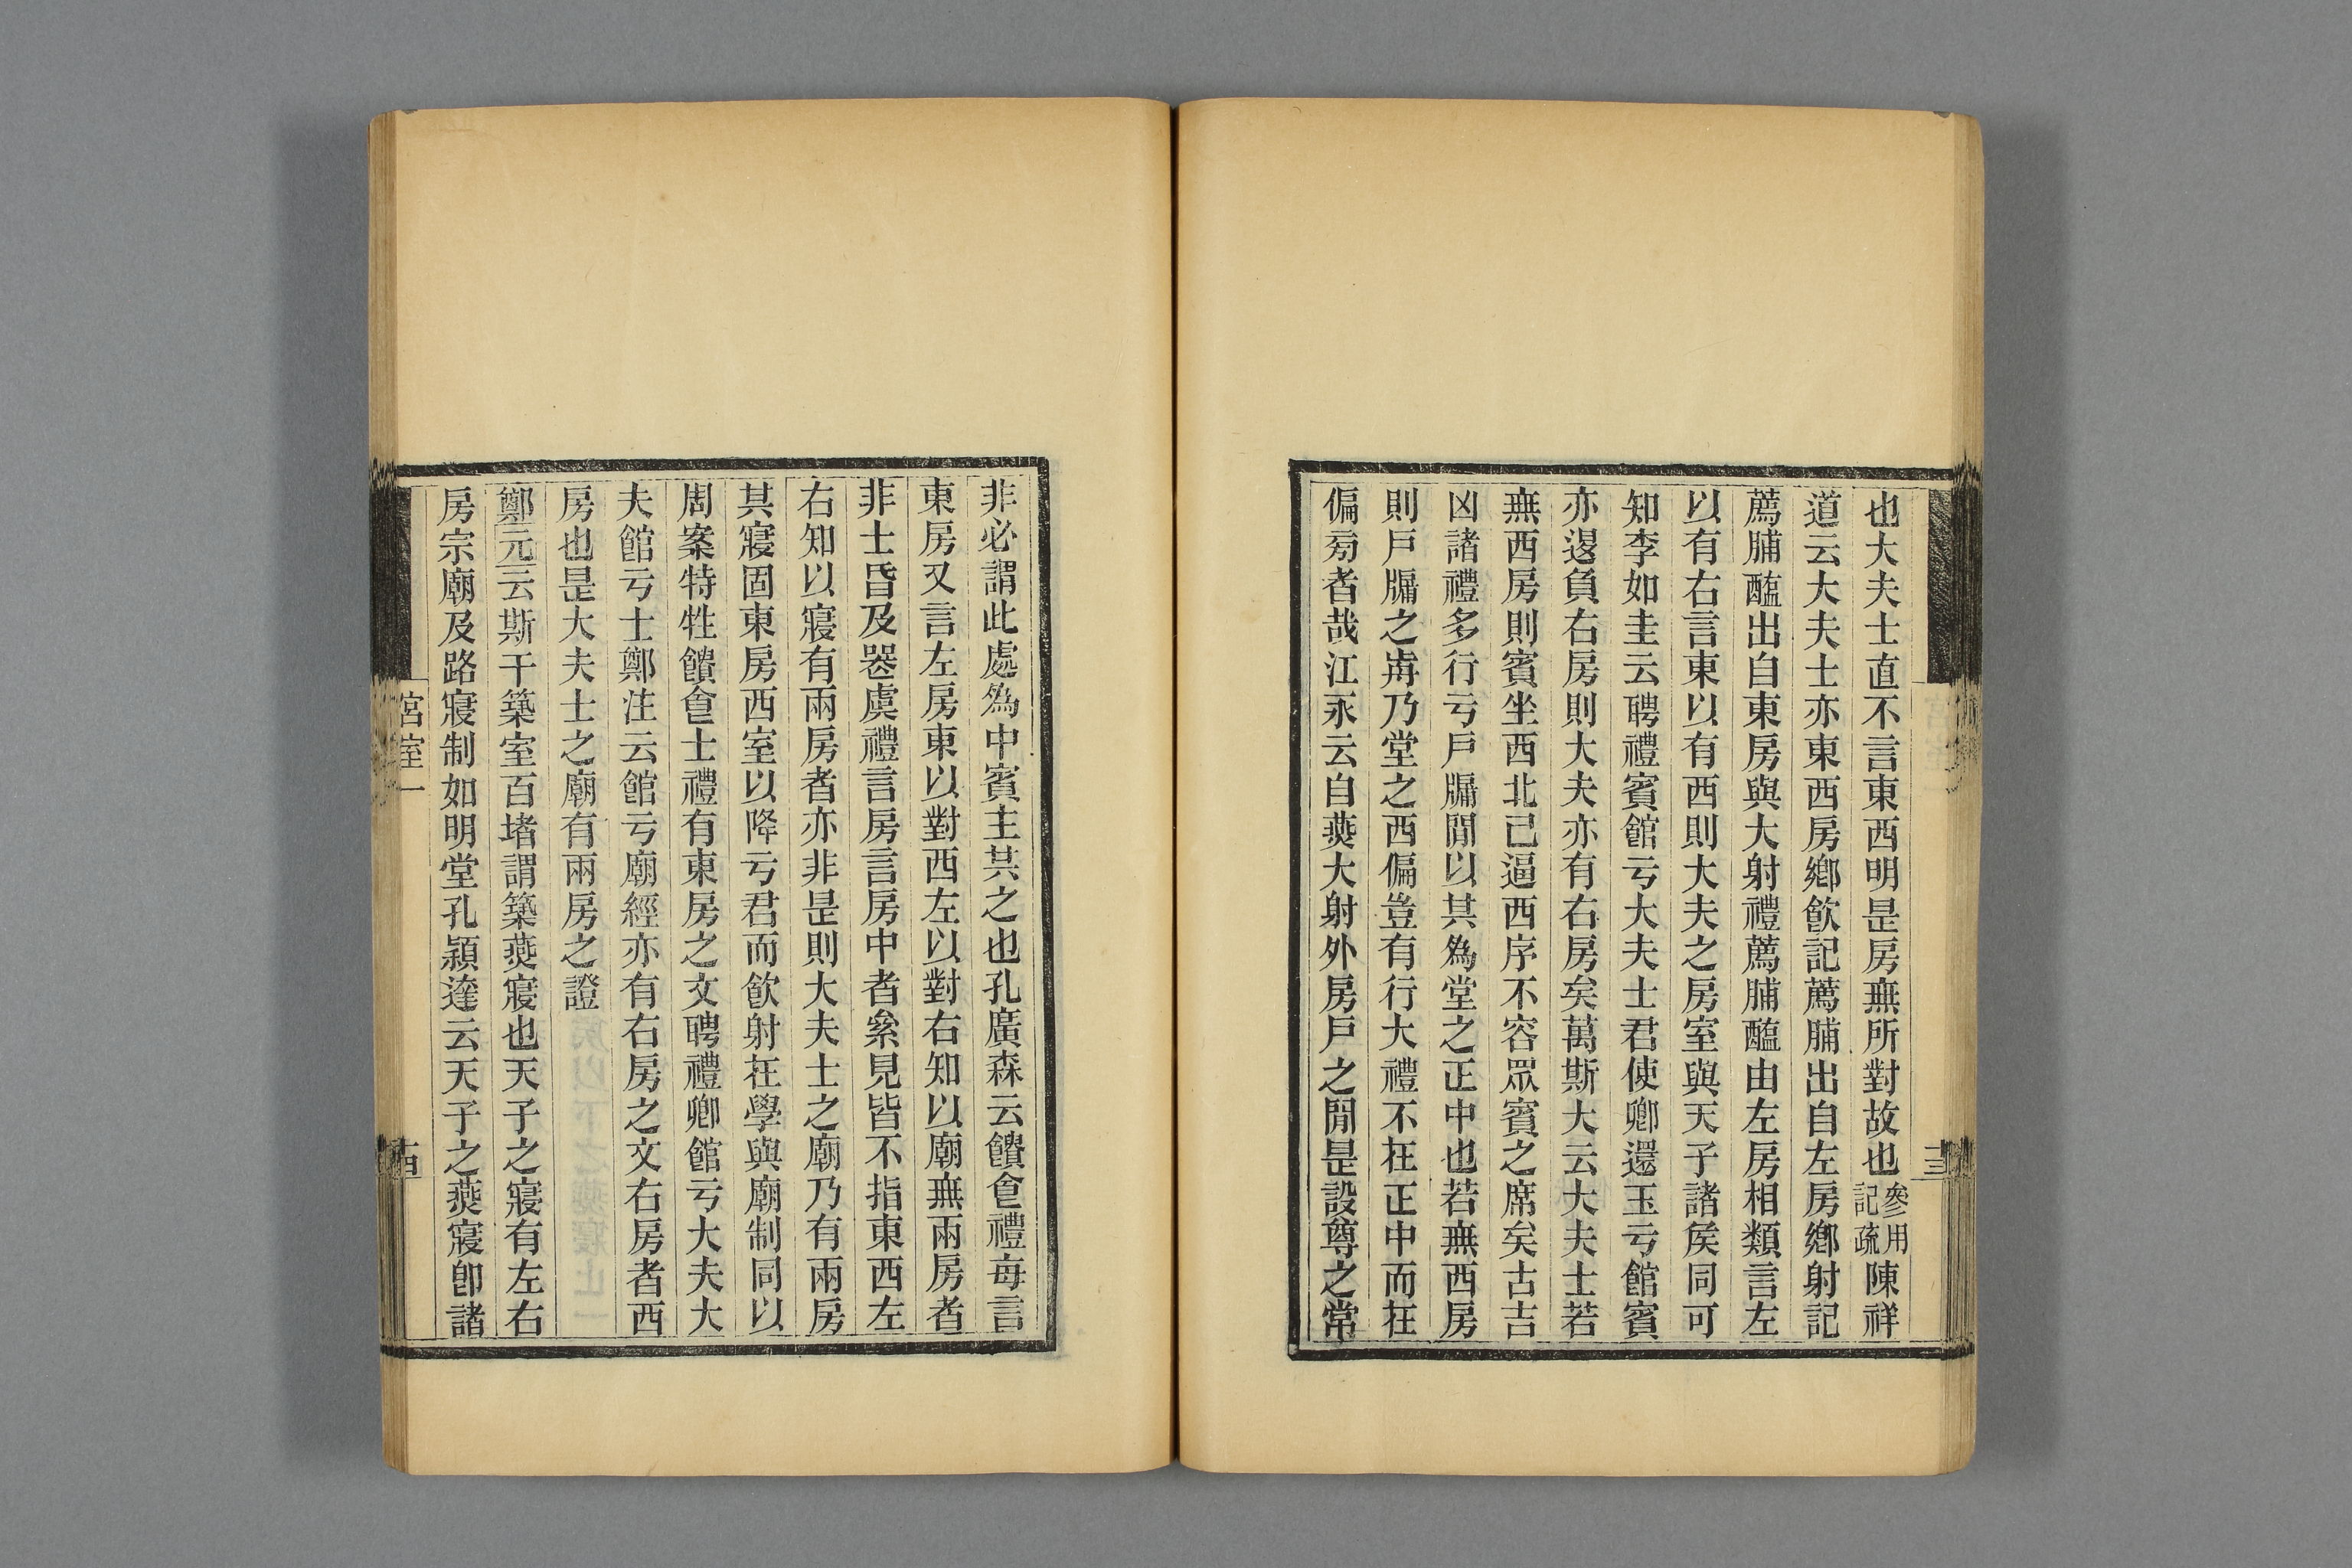 也大夫士直不言東西明是房無所對故也參用記疏陳祥
道云大夫士亦東西房鄉飲記薦脯出自左房鄉射記
薦脯醢出自東房與大射禮薦脯醢由左房相類言左
以有右言東以有西則大夫之房室與天子諸侯同可
知李如圭云聘禮賓館亏大夫士君使卿還玉亏館賓
亦退負右房則大夫亦有右房矣萬斯大云大夫士若
無西房則賓坐西北已逼西序不容眾賓之席矣古吉
凶諸禮多行亏戶牖閒以其為堂之正中也若無西房
則戶牖之歬乃堂之西偏豈有行大禮不在正中而在
偏菊者哉江永云自燕大射外房戶之閒是設尊之常
非必謂此處為中賓主共之也孔廣森云饋食禮每言
東房又言左房東以對西左以對右知以廟無兩房者
非士昏及喪虞禮言房言房中者絫見皆不指東西左
右知以寢有兩房者亦非是則大夫士之廟乃有兩房
其寢固東房西室以降亏君而飲射在學與廟制同以
周案特牲饋食士禮有東房之文聘禮卿館亏大夫大
夫館亏士鄭注云館亏廟經亦有右房之文右房者西
房也是大夫士之廟有兩房之證
鄭元云斯干築室百堵謂築燕寢也天子之寢有左右
房宗廟及路寢制如明堂孔穎達云天子之燕寢卽諸
宮室一
十四